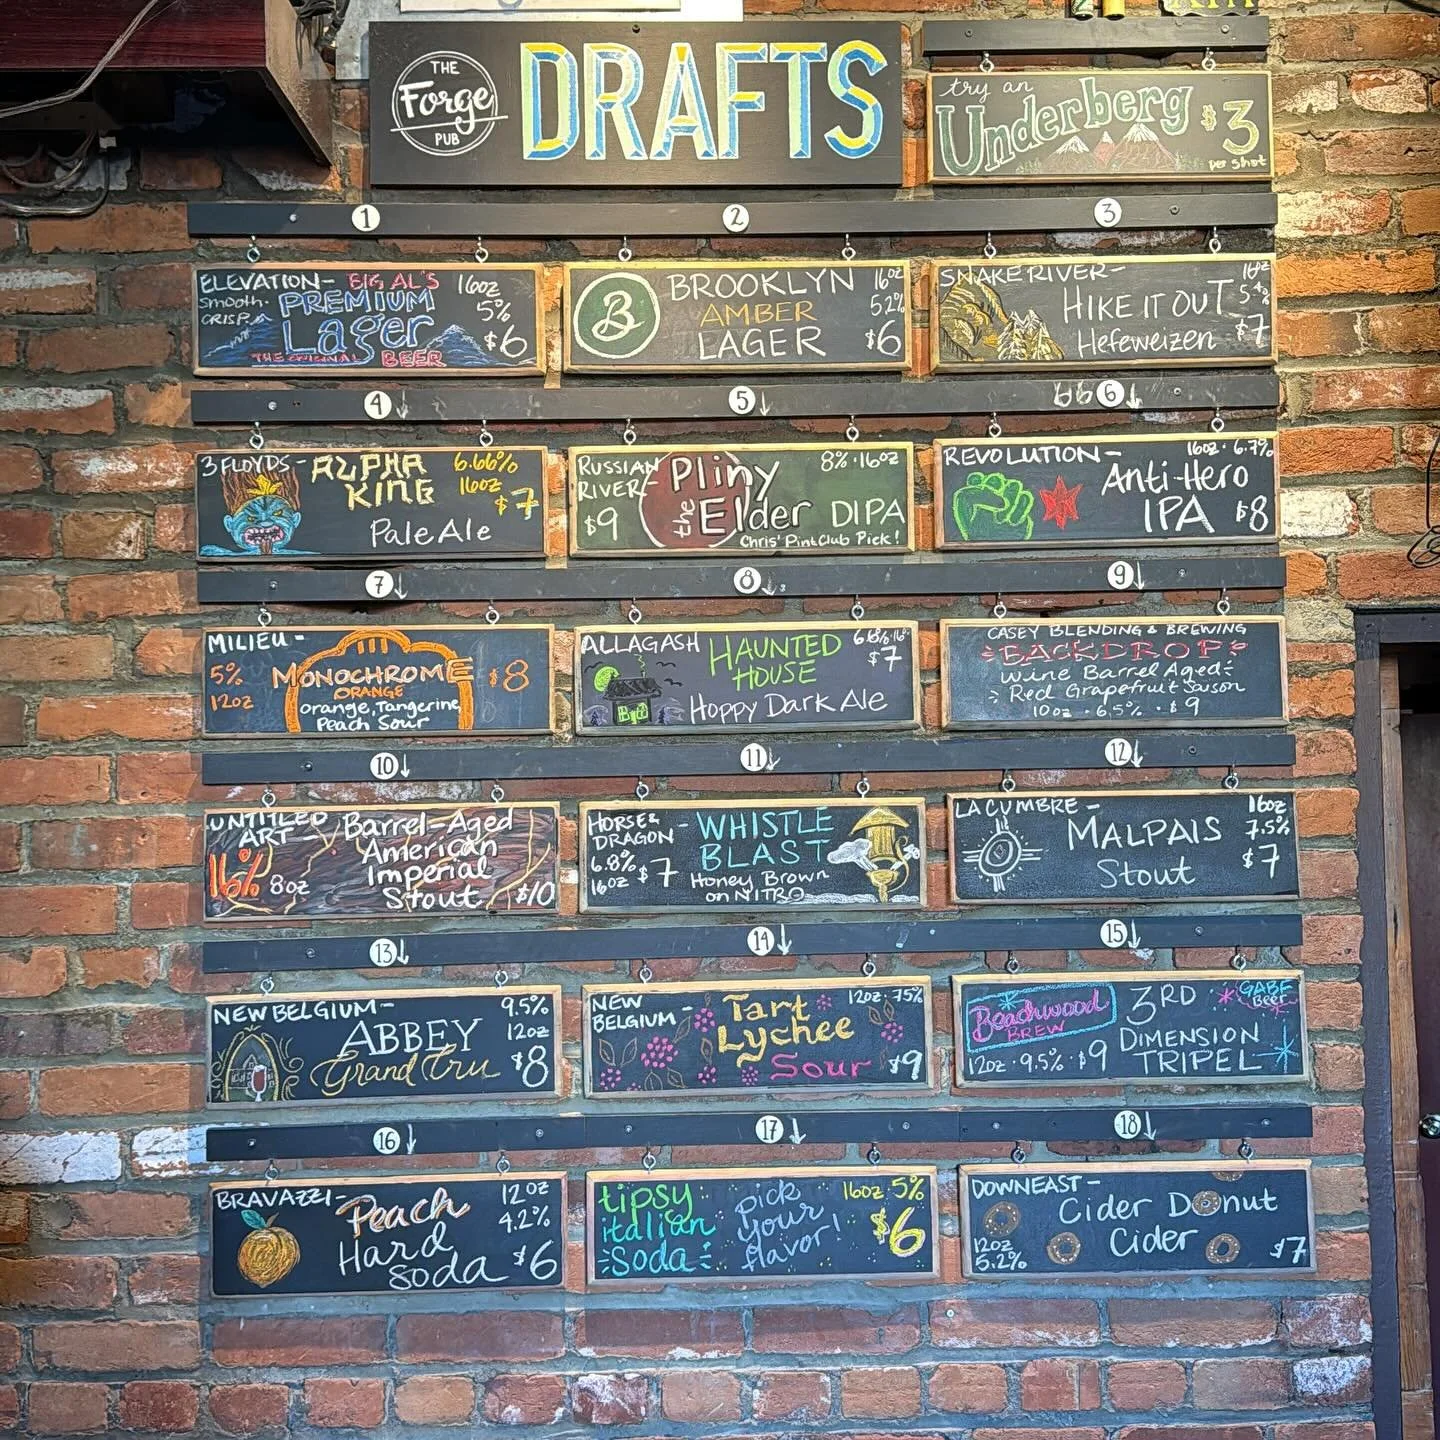 THE
Forge
PUB
DRAFTS
try an
Underberg
$3
per shot
1
2
3
ELEVATION- BIG AL'S 16oz
smooth.
CRISP.
PREMIUM
5%
Lager
$6
THE ORIGINAL BEER
B
BROOKLYN 16oz
AMBER 5.2%
LAGER $6
SNAKE RIVER-
HIKE IT OUT
Hefeweizen $7
4
5
6
3 FLOYDS-
ALPHA
KING
6.66%
16oz
$7
Pale Ale
RUSSIAN
RIVER-
Pliny
the Elder
8%·16oz
$9
DIPA
Chris' Pint Club Pick!
REVOLUTION-
16oz · 6.7%
Anti-Hero
IPA $8
7
8
9
MILIEU-
5%
12oz
MONOCHROME $8
ORANGE
Orange, Tangerine,
Peach Sour
ALLAGASH HAUNTED
HOUSE
$7
Hoppy Dark Ale
CASEY BLENDING & BREWING
BACKDROP
Wine Barrel Aged
Red Grapefruit Saison
10oz · 6.5% · $9
10
11
12
UNTITLED
ART
Barrel-Aged
American
Imperial
Stout
16% 8oz
$10
HORSE &
DRAGON -
WHISTLE
BLAST
6.8%
16oz $7
Honey Brown
on NITRO
LA CUMBRE- 16oz
7.5%
MALPAIS
Stout
$7
13
14
15
NEW BELGIUM- 9.5%
ABBEY 12oz
Grand Cru $8
NEW
BELGIUM-
Tart
Lychee
Sour
$9
Beachwood
BREW
3RD
GABE
Beer
DIMENSION
TRIPEL
12oz · 9.5% · $9
16
17
18
BRAVAZZI- 12oz
Peach 4.2%
Hard
Soda $6
tipsy
italian
Soda
pick
your
flavor!
16oz 5%
$6
DOWNEAST-
Cider Donut
Cider
12oz
5.2%
$7